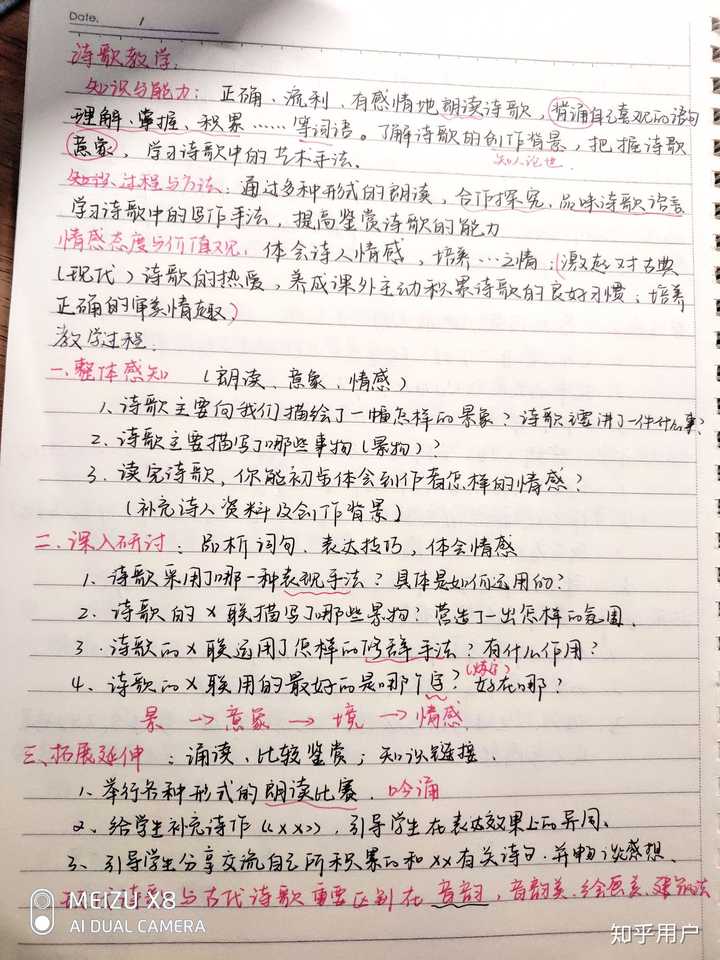 Date. /
诗歌教学.
知识与能力: 正确、流利、有感情地朗读诗歌, 背诵自己喜欢的语句
理解、掌握、积累……等词语。了解诗歌的创作背景, 把握诗歌
知人论世.
意象, 学习诗歌中的艺术手法.
过程与方法: 通过多种形式的朗读, 合作探究, 品味诗歌语言
学习诗歌中的写作手法, 提高鉴赏诗歌的能力
情感态度与价值观: 体会诗人情感, 培养…之情; 激起对古典
(现代) 诗歌的热爱, 养成课外主动积累诗歌的良好习惯; 培养
正确的审美情趣)
教学过程.
一. 整体感知 (朗读、意象、情感)
1、诗歌主要向我们描绘了一幅怎样的景象? 诗歌主要讲了一件什么事?
2. 诗歌主要描写了哪些事物(景物)?
3. 读完诗歌, 你能初步体会到作者怎样的情感?
(补充诗人资料及创作背景)
二. 深入研讨: 品析词句、表达技巧, 体会情感
1. 诗歌采用了哪一种表现手法? 具体是如何运用的?
2. 诗歌的×联描写了哪些景物? 营造了一出怎样的氛围.
3. 诗歌的×联运用了怎样的修辞手法? 有什么作用?
(炼字)
4、诗歌的×联用的最好的是哪个字? 好在哪?
景 → 意象 → 境 → 情感
三、拓展延伸: 诵读、比较鉴赏; 知识链接.
1、举行各种形式的朗读比赛. 吟诵
2、给学生补充诗作《××》, 引导学生在表达效果上的异同.
3、引导学生分享交流自己所积累的和××有关诗句. 并畅谈感想.
诗歌与古代诗歌重要区别在音韵, 音韵美、绘画美、建筑美
MEIZU X8
AI DUAL CAMERA
知乎用户